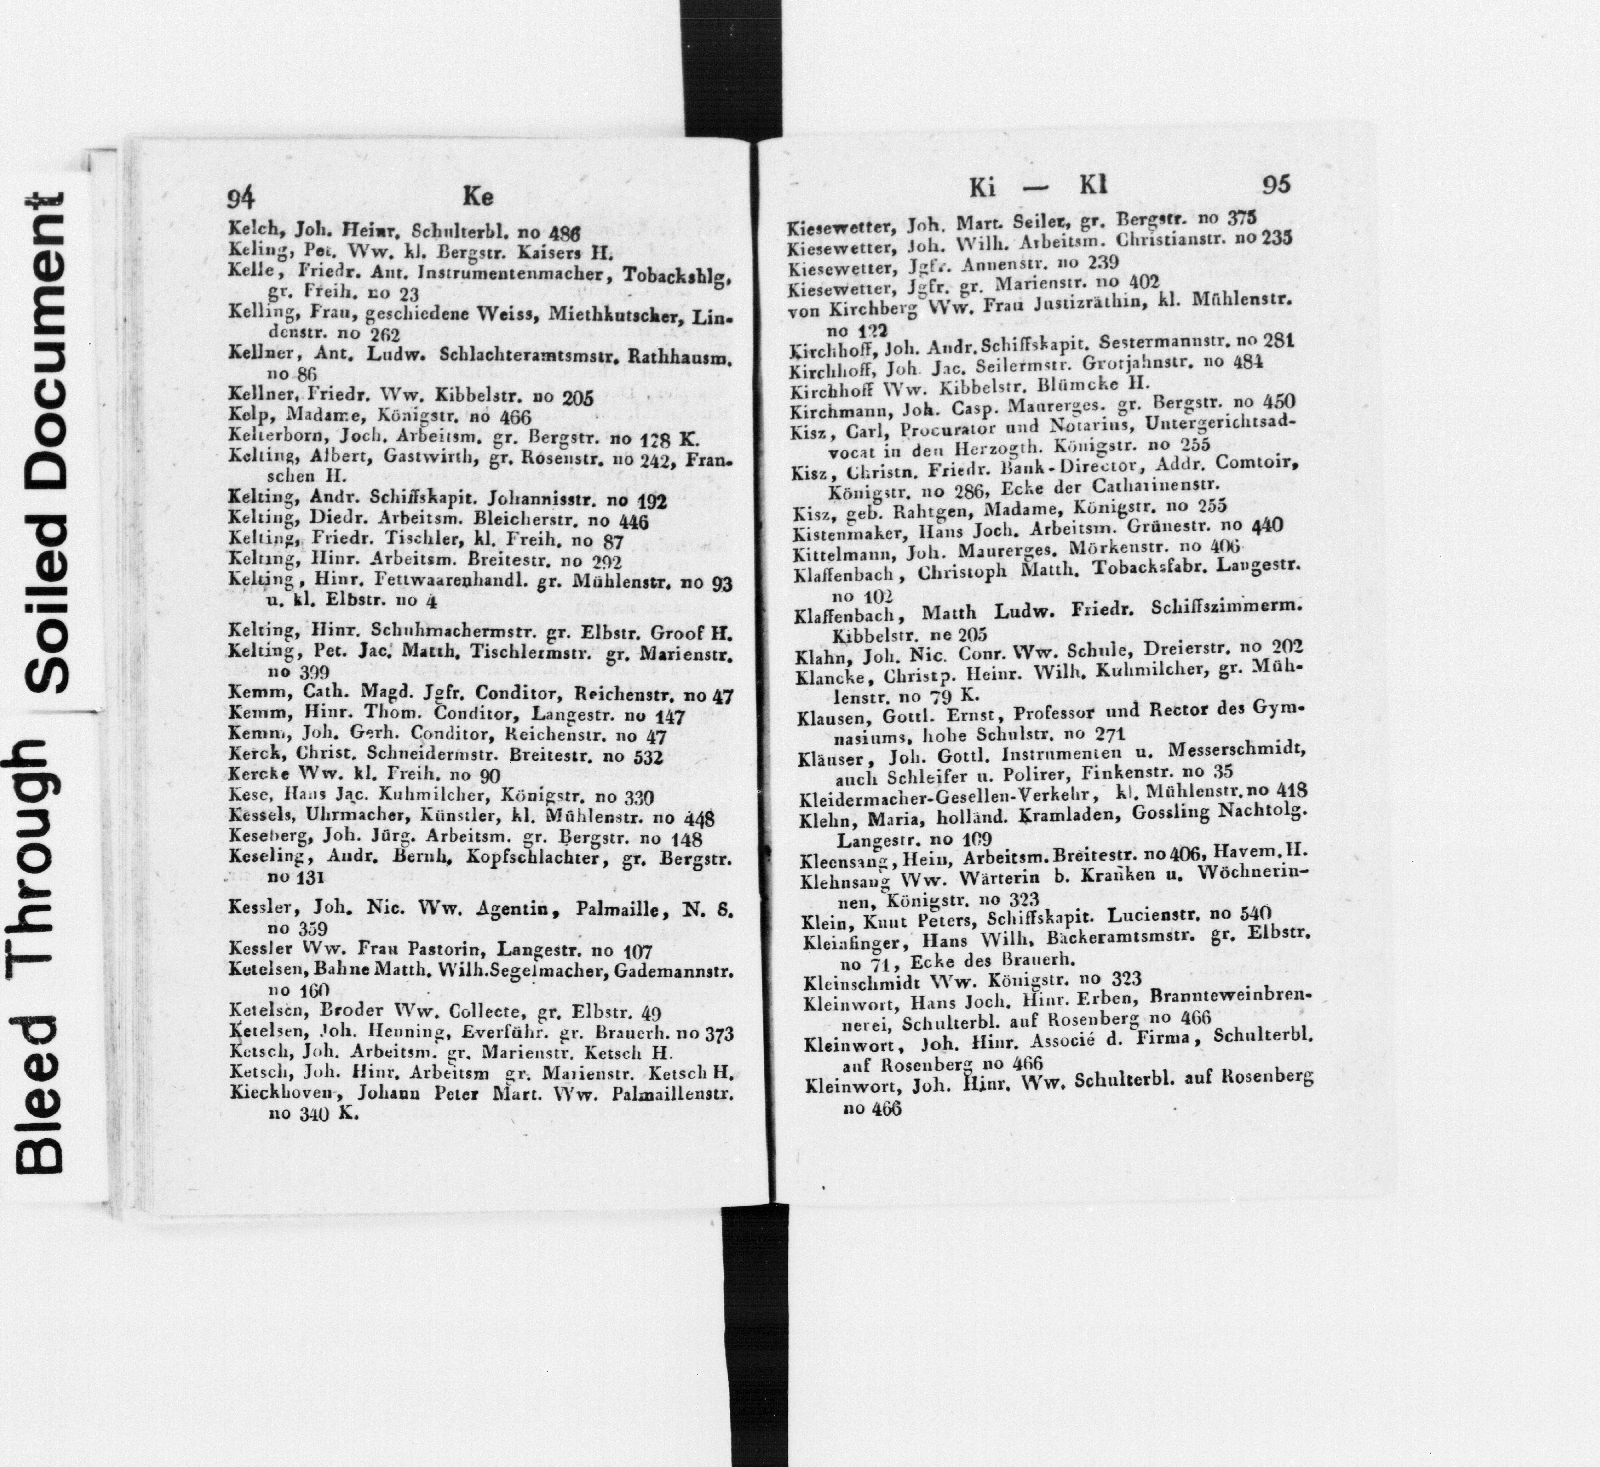 Bleed Through Soiled Document
94 Ke
Kelch, Joh. Heinr. Schulterbl. no 486
Keling, Pet. Ww. kl. Bergstr. Kaisers H.
Kelle, Friedr. Ant. Instrumentenmacher, Tobackshlg,
gr. Freih. no 23
Kelling, Frau, geschiedene Weiss, Miethkutscher, Lin-
denstr. no 262
Kellner, Ant. Ludw. Schlachteramtsmstr. Rathhausm.
no 86
Kellner, Friedr. Ww. Kibbelstr. no 205
Kelp, Madame, Königstr. no 466
Kelterborn, Joch. Arbeitsm. gr. Bergstr. no 128 K.
Kelting, Albert, Gastwirth, gr. Rosenstr. no 242, Fran-
schen H.
Kelting, Andr. Schiffskapit. Johannisstr. no 192
Kelting, Diedr. Arbeitsm. Bleicherstr. no 446
Kelting, Friedr. Tischler, kl. Freih. no 87
Kelting, Hinr. Arbeitsm. Breitestr. no 292
Kelting, Hinr. Fettwaarenhandl. gr. Mühlenstr. no 93
u. kl. Elbstr. no 4
Kelting, Hinr. Schuhmachermstr. gr. Elbstr. Groof H.
Kelting, Pet. Jac. Matth. Tischlermstr. gr. Marienstr.
no 399
Kemm, Cath. Magd. Jgfr. Conditor, Reichenstr. no 47
Kemm, Hinr. Thom. Conditor, Langestr. no 147
Kemm, Joh. Gerh. Conditor, Reichenstr. no 47
Kerck, Christ. Schneidermstr. Breitestr. no 532
Kercke Ww. kl. Freih. no 90
Kese, Hans Jac. Kuhmilcher, Königstr. no 330
Kessels, Uhrmacher, Künstler, kl. Mühlenstr. no 448
Keseberg, Joh. Jürg. Arbeitsm. gr. Bergstr. no 148
Keseling, Andr. Bernh. Kopfschlachter, gr. Bergstr.
no 131
Kessler, Joh. Nic. Ww. Agentin, Palmaille, N. S.
no 359
Kessler Ww. Frau Pastorin, Langestr. no 107
Ketelsen, Bahne Matth. Wilh. Segelmacher, Gademannstr.
no 160
Ketelsen, Broder Ww. Collecte, gr. Elbstr. 49
Ketelsen, Joh. Henning, Everführ. gr. Brauerh. no 373
Ketsch, Joh. Arbeitsm. gr. Marienstr. Ketsch H.
Ketsch, Joh. Hinr. Arbeitsm gr. Marienstr. Ketsch H.
Kieckhoven, Johann Peter Mart. Ww. Palmaillenstr.
no 340 K.
Ki — Kl 95
Kiesewetter, Joh. Mart. Seiler, gr. Bergstr. no 375
Kiesewetter, Joh. Wilh. Arbeitsm. Christianstr. no 235
Kiesewetter, Jgfr. Annenstr. no 239
Kiesewetter, Jgfr. gr. Marienstr. no 402
von Kirchberg Ww. Frau Justizräthin, kl. Mühlenstr.
no 122
Kirchhoff, Joh. Andr. Schiffskapit. Sestermannstr. no 281
Kirchhoff, Joh. Jac. Seilermstr. Grotjahnstr. no 484
Kirchhoff Ww. Kibbelstr. Blümcke H.
Kirchmann, Joh. Casp. Maurerges. gr. Bergstr. no 450
Kisz, Carl, Procurator und Notarius, Untergerichtsad-
vocat in den Herzogth. Königstr. no 255
Kisz, Christn. Friedr. Bank-Director, Addr. Comtoir,
Königstr. no 286, Ecke der Catharinenstr.
Kisz, geb. Rahtgen, Madame, Königstr. no 255
Kistenmaker, Hans Joch. Arbeitsm. Grünestr. no 440
Kittelmann, Joh. Maurerges. Mörkenstr. no 406
Klaffenbach, Christoph Matth. Tobacksfabr. Langestr.
no 102
Klaffenbach, Matth Ludw. Friedr. Schiffszimmerm.
Kibbelstr. ne 205
Klahn, Joh. Nic. Conr. Ww. Schule, Dreierstr. no 202
Klancke, Christp. Heinr. Wilh. Kuhmilcher, gr. Müh-
lenstr. no 79 K.
Klausen, Gottl. Ernst, Professor und Rector des Gym-
nasiums, hohe Schulstr. no 271
Kläuser, Joh. Gottl. Instrumenten u. Messerschmidt,
auch Schleifer u. Polirer, Finkenstr. no 35
Kleidermacher-Gesellen-Verkehr, kl. Mühlenstr. no 418
Klehn, Maria, holländ. Kramladen, Gossling Nachtolg.
Langestr. no 169
Kleensang, Hein, Arbeitsm. Breitestr. no 406, Havem. H.
Klehnsang Ww. Wärterin b. Kranken u. Wöchnerin-
nen, Königstr. no 323
Klein, Knut Peters, Schiffskapit. Lucienstr. no 540
Kleinfinger, Hans Wilh. Bäckeramtsmstr. gr. Elbstr.
no 71, Ecke des Brauerh.
Kleinschmidt Ww. Königstr. no 323
Kleinwort, Hans Joch. Hinr. Erben, Brannteweinbren-
nerei, Schulterbl. auf Rosenberg no 466
Kleinwort, Joh. Hinr. Associé d. Firma, Schulterbl.
auf Rosenberg no 466
Kleinwort, Joh. Hinr. Ww. Schulterbl. auf Rosenberg
no 466